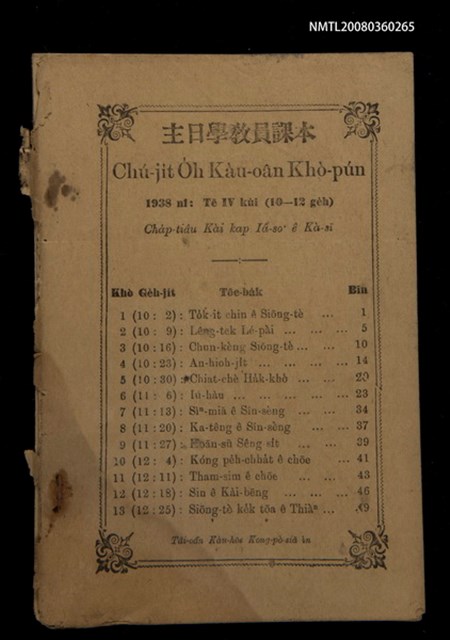 NMTL20080360265
主日學教員課本
Chú-ji̍t O̍h Kàu-oân Khò-pún
1938 nî: Tē IV kùi (10—12 ge̍h)
Cha̍p-tiâu Kài kap Iâ-so͘ ê Kà-sī
Khò Ge̍h-ji̍t Tôe-ba̍k Bīn
1 (10 : 2) : To̍k-it chin ê Siōng-tè ... 1
2 (10 : 9) : Lêng-tek Lé-pài ... ... ... 5
3 (10 : 16) : Chun-kèng Siōng-tè ... ... 10
4 (10 : 23) : An-hioh-ji̍t ... ... ... 14
5 (10 : 30) : Chiat-chè Ha̍k-khò ... ... 20
6 (11 : 6) : Iú-hàu ... ... ... ... 23
7 (11 : 13) : Sìⁿ-miā ê Sîn-sèng ... ... 34
8 (11 : 20) : Ka-têng ê Sîn-sèng ... 37
9 (11 : 27) : Bān-sū Sêng-si̍t ... ... 39
10 (12 : 4) : Kóng pe̍h-chha̍t ê chōe ... 41
11 (12 : 11) : Tham-sim ê chōe ... ... 43
12 (12 : 18) : Sin ê Kài-bēng ... ... 46
13 (12 : 25) : Siōng-tè ke̍k tōa ê Thiàⁿ ... 49
Tâi-oân Kàu-hōe Kong-pò-siā ìn